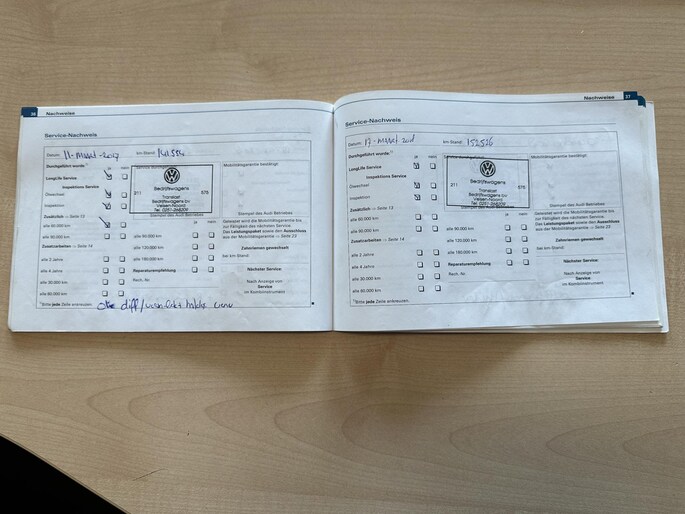 36 Nachweise
Service-Nachweis
Datum: 11-Maart-2017 km-Stand: 141584
Durchgeführt wurde: ja nein
LongLife Service
Inspektions Service
Ölwechsel
Inspektion
Zusätzlich → Seite 13
alle 60.000 km
Zusatzarbeiten → Seite 14
alle 2 Jahre
alle 4 Jahre
alle 30.000 km
alle 60.000 km
211 575
Bedrijfswagens
Velsen-Noord
Stempel des Audi Betriebes
ja nein
alle 90.000 km
alle 120.000 km
alle 180.000 km
Reparaturempfehlung
Rech.-Nr.
Mobilitätsgarantie bestätigt:
Stempel des Audi Betriebes
Geleistet wird die Mobilitätsgarantie bis
zur Fälligkeit des nächsten Service.
Das Leistungspaket sowie den Ausschluss
aus der Mobilitätsgarantie → Seite 22
Zahnriemen gewechselt:
bei km-Stand:
Nächster Service:
Nach Anzeige von
Service
im Kombiinstrument
Bitte jede Zeile ankreuzen.
Nachweise 37
Service-Nachweis
Datum: 17-Maart km-Stand: 152526
Durchgeführt wurde: ja nein
LongLife Service
Inspektions Service
Ölwechsel
Inspektion
Zusätzlich → Seite 13
alle 60.000 km
Zusatzarbeiten → Seite 14
alle 2 Jahre
alle 4 Jahre
alle 30.000 km
alle 60.000 km
211 575
Bedrijfswagens
Velsen-Noord
Stempel des Audi Betriebes
ja nein
alle 90.000 km
alle 120.000 km
alle 180.000 km
Reparaturempfehlung
Rech.-Nr.
Mobilitätsgarantie bestätigt:
Stempel des Audi Betriebes
Geleistet wird die Mobilitätsgarantie bis
zur Fälligkeit des nächsten Service.
Das Leistungspaket sowie den Ausschluss
aus der Mobilitätsgarantie → Seite 22
Zahnriemen gewechselt:
bei km-Stand:
Nächster Service:
Nach Anzeige von
Service
im Kombiinstrument
Bitte jede Zeile ankreuzen.